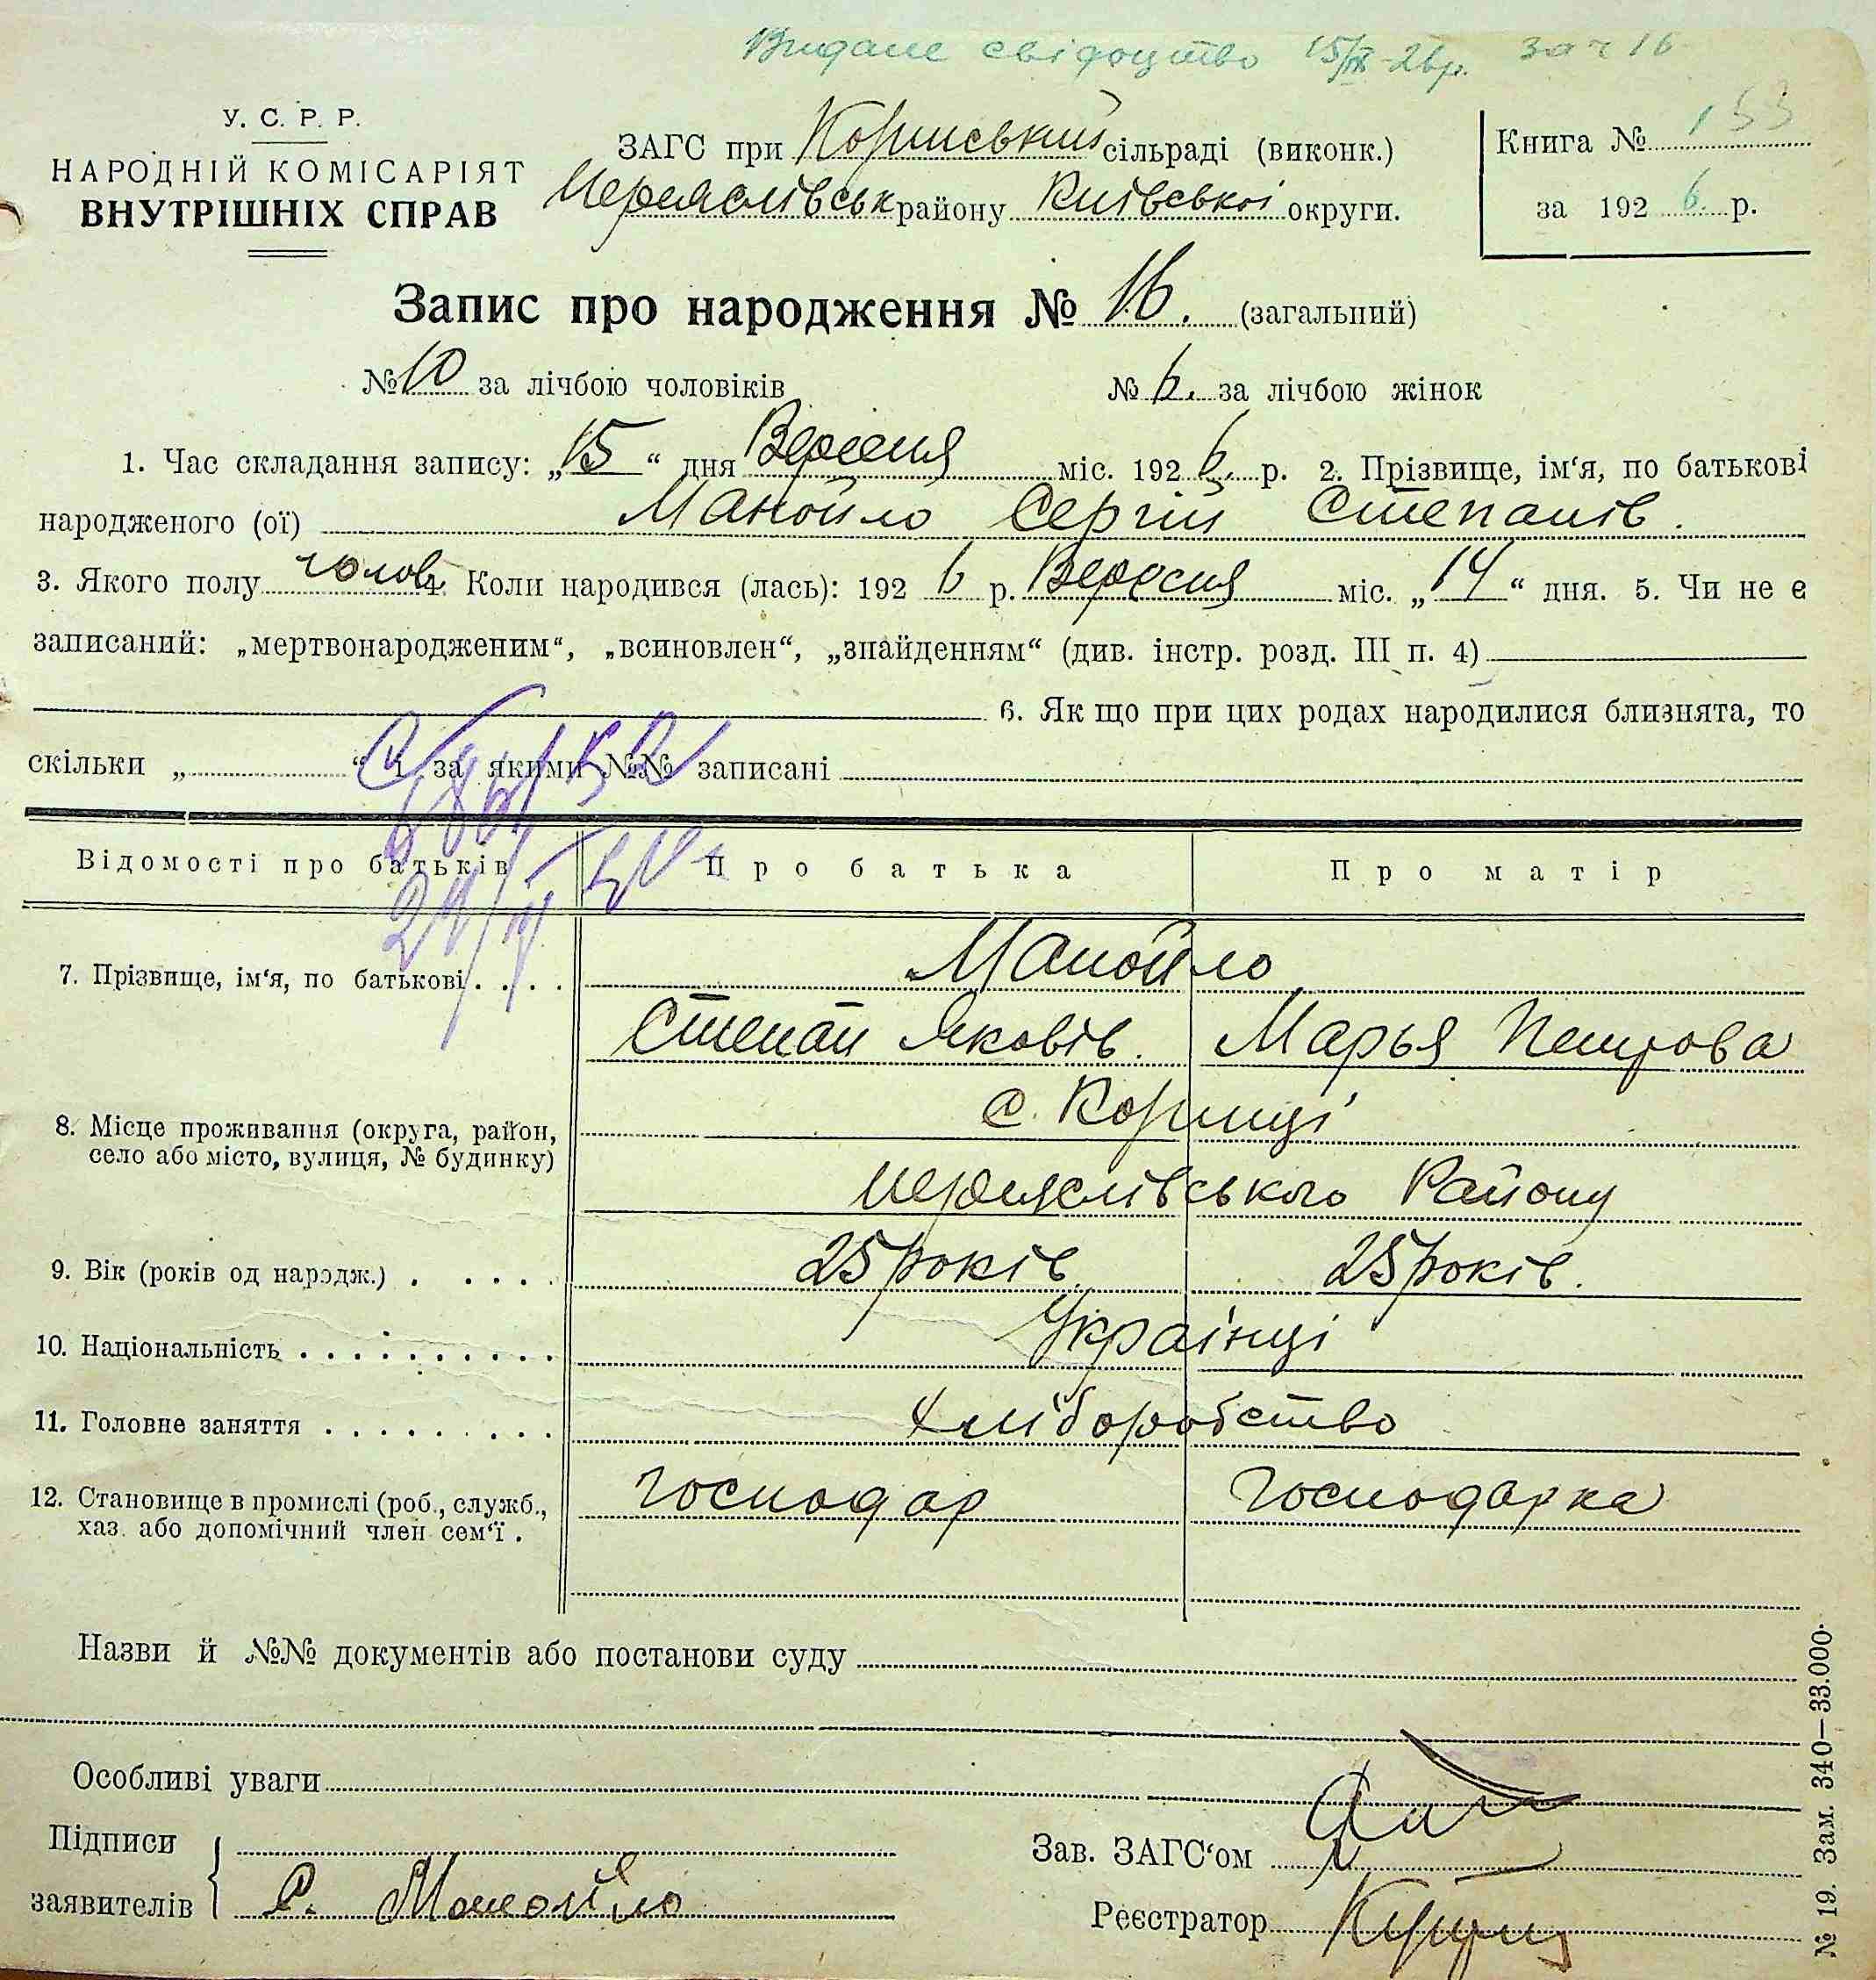 Видане свідоцтво 15/IX-26р. за ч 16
У. С. Р. Р.
НАРОДНІЙ КОМІСАРІЯТ
ВНУТРІШНІХ СПРАВ
ЗАГС при Коринський сільраді (виконк.)
Переяслівськ району Київської округи.
Книга № 153
за 1926 р.
Запис про народження № 16. (загальний)
№ 10 за лічбою чоловіків № 6. за лічбою жінок
1. Час складання запису: „15“ дня Вересня міс. 1926. р. 2. Прізвище, ім‘я, по батькові
народженого (ої) Манойло Сергій Степанів.
3. Якого полу чолов. 4. Коли народився (лась): 1926 р. Вересня міс. „14“ дня. 5. Чи не є
записаний: „мертвонародженим“, „всиновлен“, „знайденням“ (див. інстр. розд. III п. 4)
6. Як що при цих родах народилися близнята, то
скільки „ “ і за якими №№ записані
Відомості про батьків Про батька Про матір
7. Прізвище, ім‘я, по батькові . . . . Манойло
Степан Яковів. Марья Петрова
8. Місце проживання (округа, район,
село або місто, вулиця, № будинку)
с. Коринці
Переяслівського Району
9. Вік (років од народж.) . . . . . 25 років. 25 років.
10. Національність . . . . . . . . . . Українці
11. Головне заняття . . . . . . . . . Хліборобство
12. Становище в промислі (роб., служб.,
хаз. або допомічний член сем‘ї .
господар Господарка
Назви й №№ документів або постанови суду
Особливі уваги
Підписи
заявителів
С. Манойло
Зав. ЗАГС‘ом
Реєстратор
№ 19. Зам. 340—33.000.